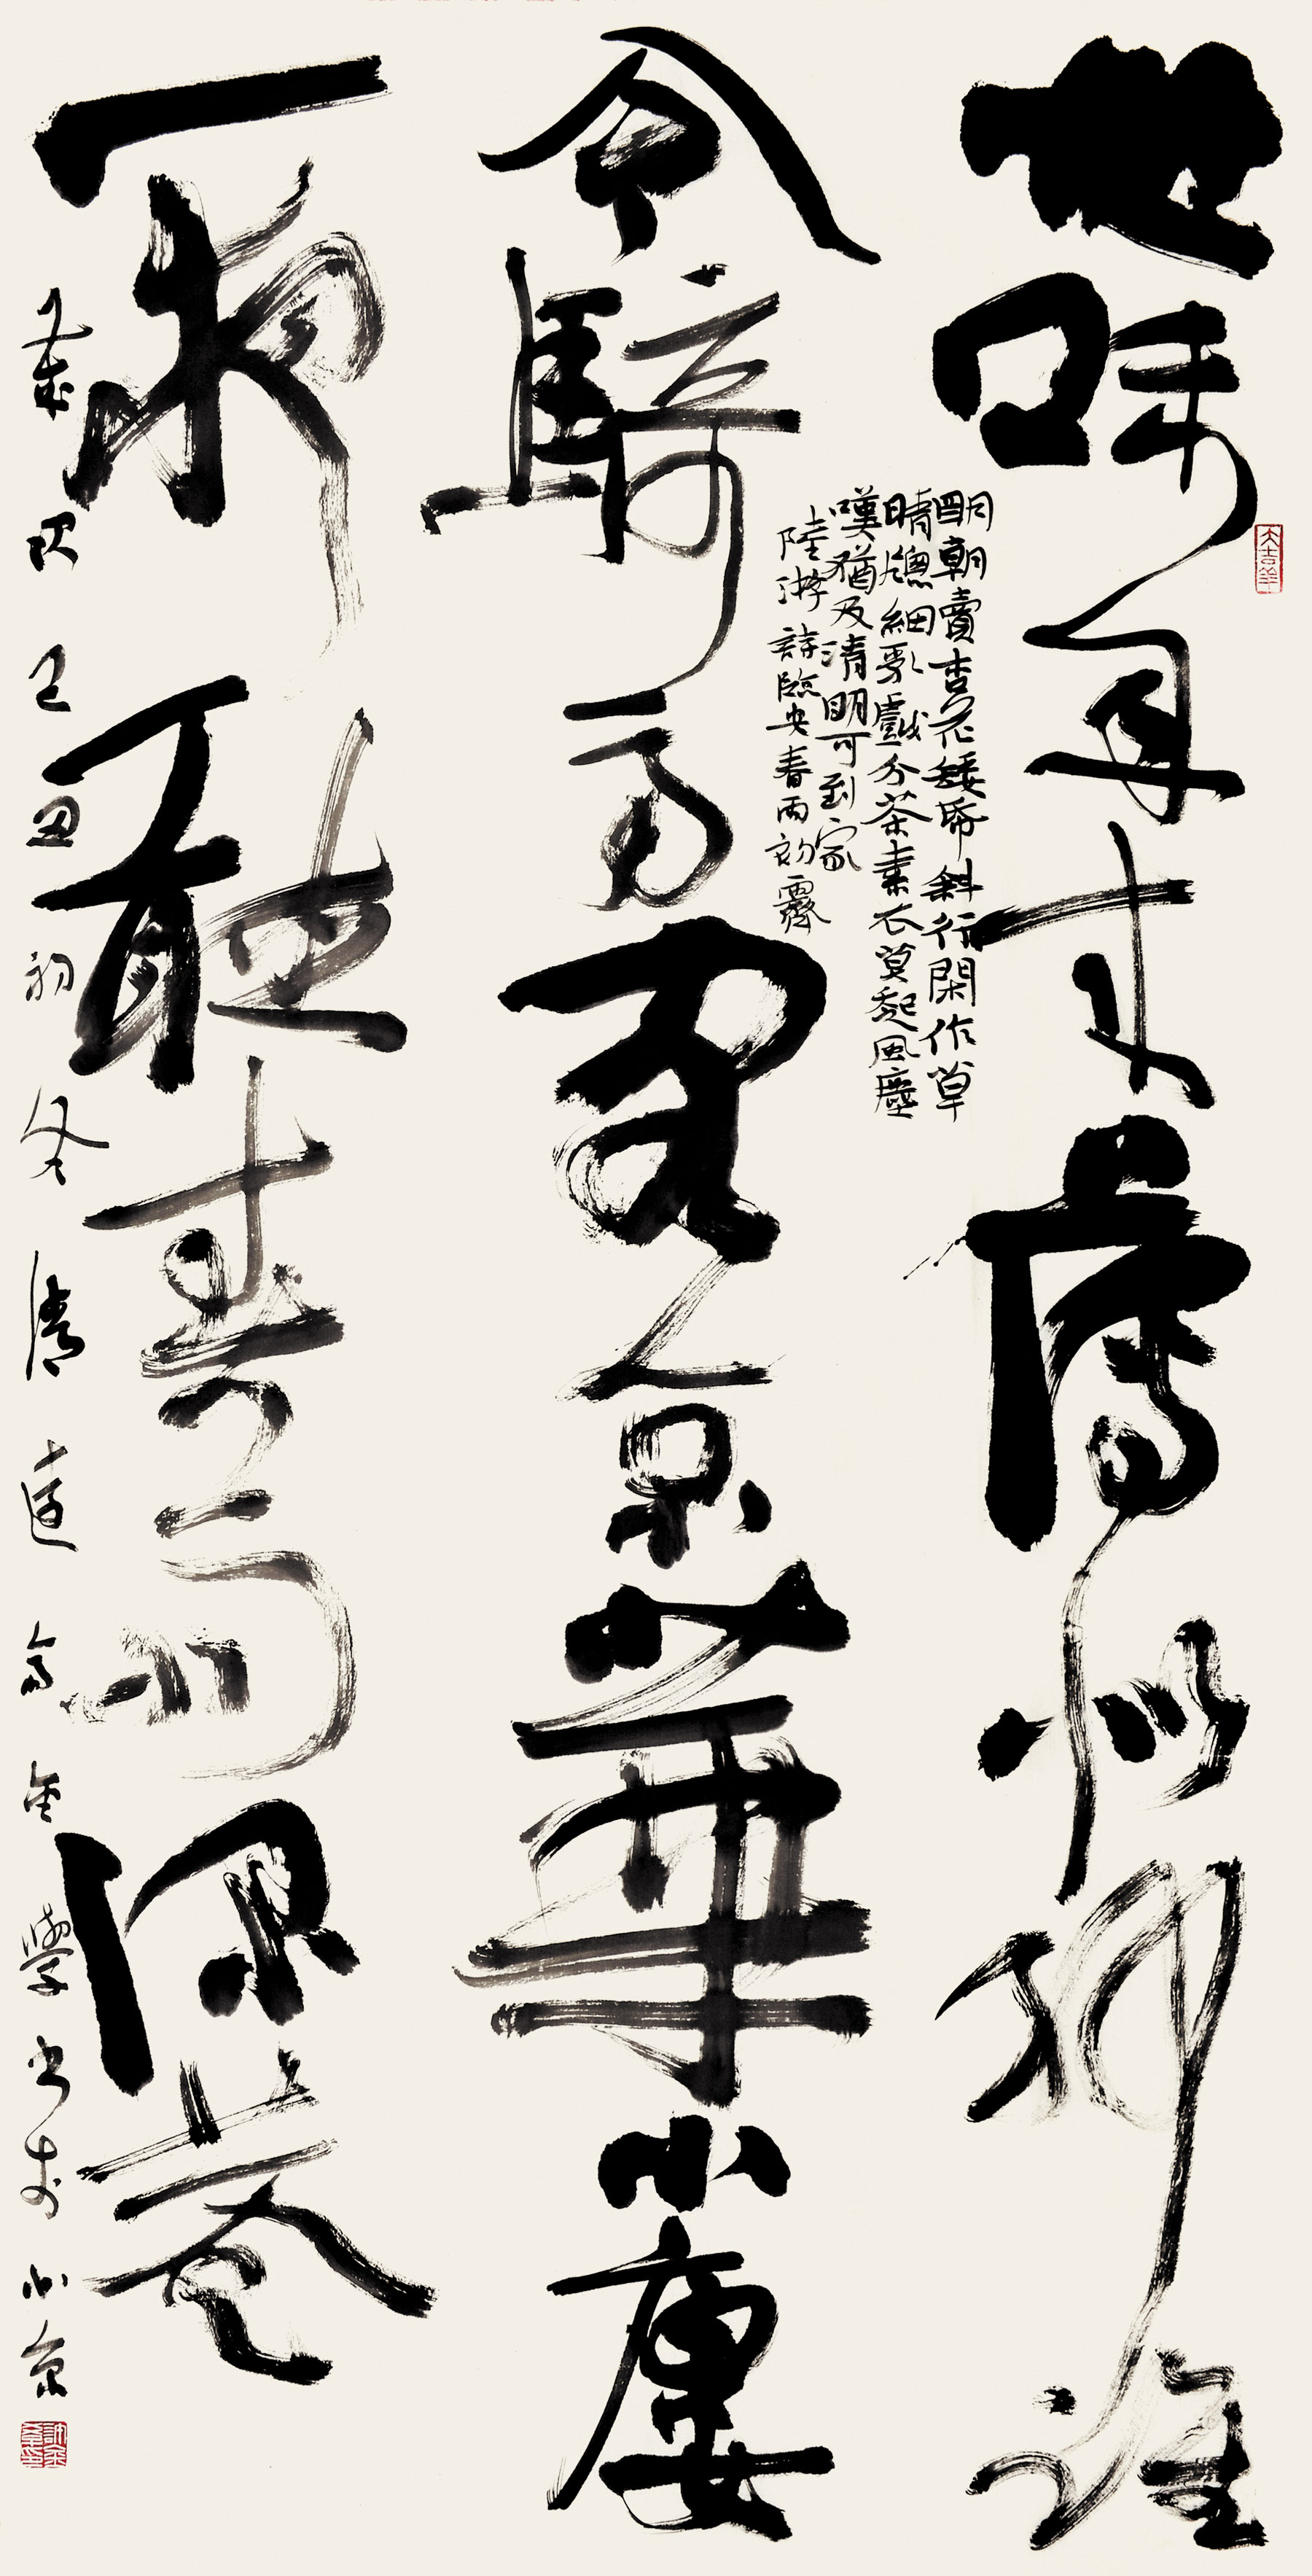 世味年來薄似紗誰
令騎馬客京華小廔
一夜聽春雨深巷
明朝賣杏花矮帋斜行閑作草
晴牕細乳戲分茶素衣莫起風塵
嘆猶及清明可到家
陸游詩臨安春雨初霽
歲次己丑初冬清遠金學書於北京
大吉羊